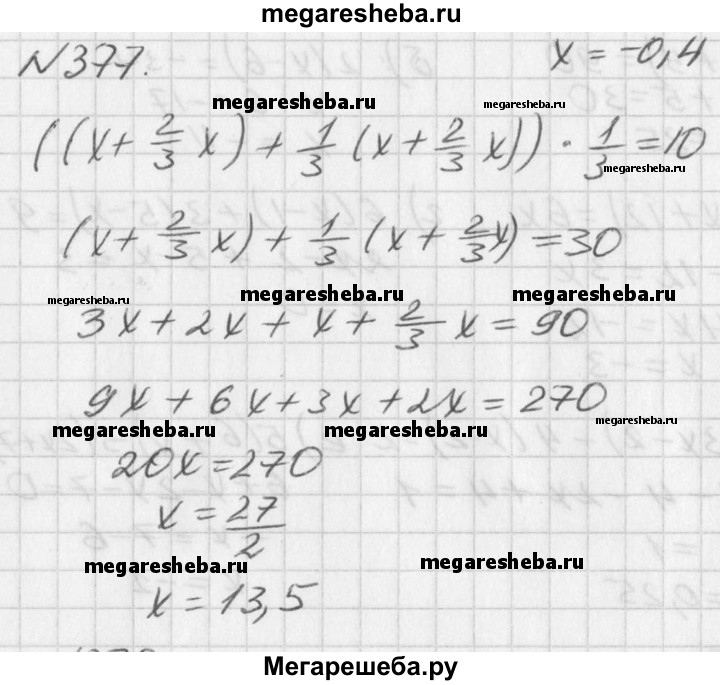 megaresheba.ru
N377.
x = -0,4
megaresheba.ru megaresheba.ru
((x + 2/3 x) + 1/3 (x + 2/3 x)) · 1/3 = 10
megaresheba.ru
(x + 2/3 x) + 1/3 (x + 2/3 x) = 30
megaresheba.ru megaresheba.ru megaresheba.ru
3x + 2x + x + 2/3 x = 90
9x + 6x + 3x + 2x = 270
megaresheba.ru megaresheba.ru megaresheba.ru
20x = 270
x = 27/2
megaresheba.ru megaresheba.ru
x = 13,5
Мегарешеба.ру